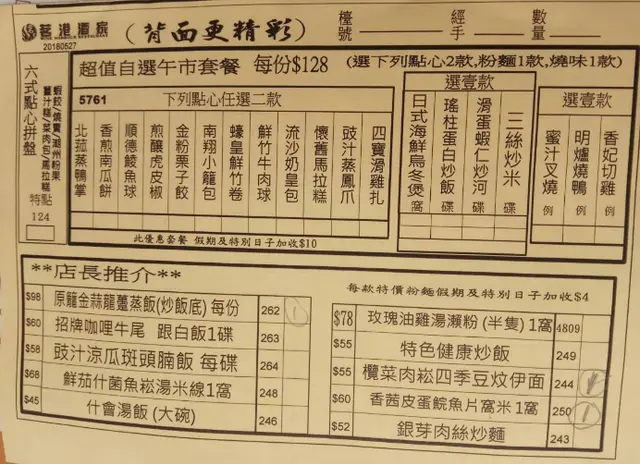 茗港酒家
20180527
(背面更精彩)
檯號
經手
數量
六式點心拼盤
蝦餃/燒賣/潮州粉果
薑汁糕/菜肉包/馬拉糕
特點
124
超值自選午市套餐 每份$128 (選下列點心2款,粉麵1款,燒味1款)
5761 下列點心任選二款
北菰蒸鴨掌
香煎南瓜餅
順德鯪魚球
煎釀虎皮椒
金粉栗子餃
南翔小籠包
蠔皇鮮竹卷
鮮竹牛肉球
流沙奶皇包
懷舊馬拉糕
豉汁蒸鳳爪
四寶滑雞扎
選壹款
日式海鮮烏冬煲 窩
瑤柱蛋白炒飯 碟
滑蛋蝦仁炒河 碟
三絲炒米 碟
選壹款
蜜汁叉燒 例
明爐燒鴨 例
香妃切雞 例
此優惠套餐 假期及特別日子加收$10
**店長推介**
每款特價粉麵假期及特別日子加收$4
$98 原籠金蒜龍躉蒸飯(炒飯底) 每份 262 1
$60 招牌咖哩牛尾 跟白飯1碟 263
$58 豉汁涼瓜斑頭腩飯 每碟 264
$68 鮮茄什菌魚崧湯米線1窩 248
$45 什會湯飯 (大碗) 246
$78 玫瑰油雞湯瀨粉 (半隻) 1窩 4809
$55 特色健康炒飯 249
$55 欖菜肉崧四季豆炆伊面 244
$60 香茜皮蛋鯇魚片窩米 1窩 250 1
$52 銀芽肉絲炒麵 243